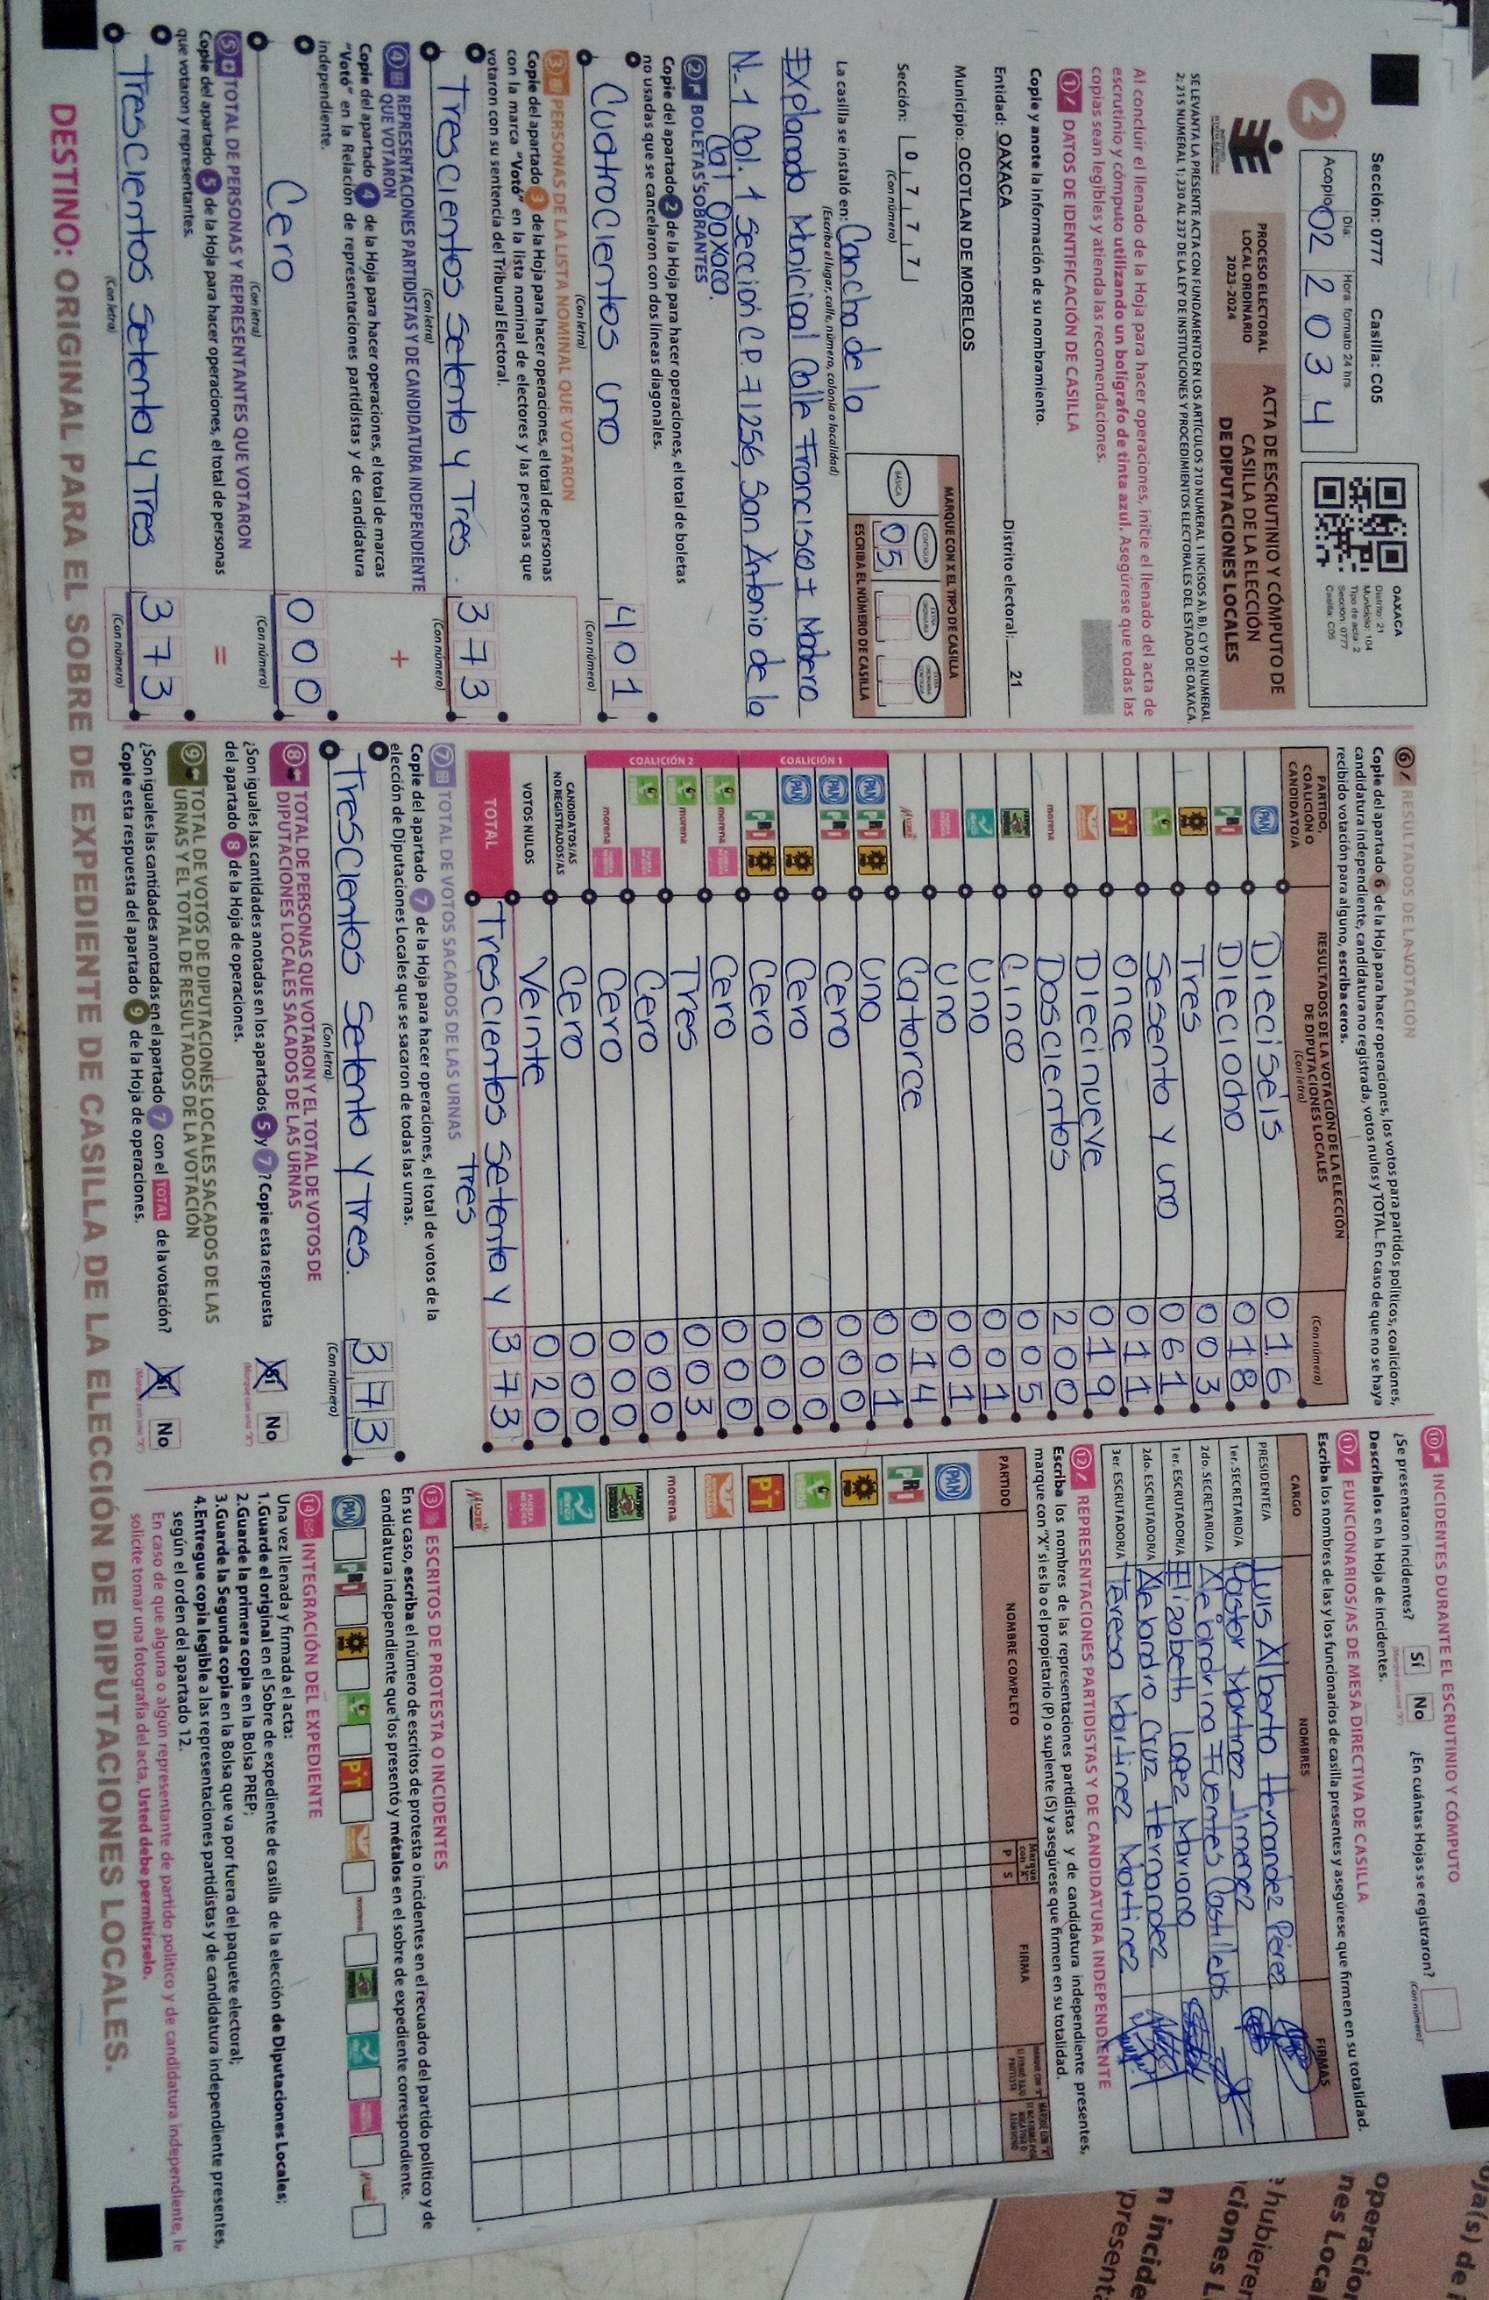 Sección: 0777 Casilla: C05
2
Acopio
Día: Hora: formato 24 hrs.
02 20 34
OAXACA
Distrito: 21
Municipio: 104
Tipo de acta: 2
Sección: 0777
Casilla: C05
PROCESO ELECTORAL
LOCAL ORDINARIO
2023-2024
ACTA DE ESCRUTINIO Y CÓMPUTO DE
CASILLA DE LA ELECCIÓN
DE DIPUTACIONES LOCALES
SE LEVANTA LA PRESENTE ACTA CON FUNDAMENTO EN LOS ARTÍCULOS 210 NUMERAL 1 INCISOS A), B), C) Y D) NUMERAL
2; 215 NUMERAL 1; 230 AL 237 DE LA LEY DE INSTITUCIONES Y PROCEDIMIENTOS ELECTORALES DEL ESTADO DE OAXACA.
Al concluir el llenado de la Hoja para hacer operaciones, inicie el llenado del acta de
escrutinio y cómputo utilizando un bolígrafo de tinta azul. Asegúrese que todas las
copias sean legibles y atienda las recomendaciones.
1 DATOS DE IDENTIFICACIÓN DE CASILLA
Copie y anote la información de su nombramiento.
Entidad: OAXACA Distrito electoral: 21
Municipio: OCOTLAN DE MORELOS
Sección: 0 7 7 7
(Con número)
MARQUE CON X EL TIPO DE CASILLA
BÁSICA
ESCRIBA EL NÚMERO DE CASILLA
05
La casilla se instaló en: Cancha de la
(Escriba el lugar, calle, número, colonia o localidad)
Explanada Municipal Calle Francisco I Madero
N-1 Col. 1 Sección C.P. 71256, San Antonio de la
Cal Oaxaca.
2 BOLETAS SOBRANTES
Copie del apartado 2 de la Hoja para hacer operaciones, el total de boletas
no usadas que se cancelaron con dos líneas diagonales.
Cuatrocientos uno 401
(Con letra) (Con número)
3 PERSONAS DE LA LISTA NOMINAL QUE VOTARON
Copie del apartado 3 de la Hoja para hacer operaciones, el total de personas
con la marca "Votó" en la lista nominal de electores y las personas que
votaron con su sentencia del Tribunal Electoral.
Trescientos Setenta y Tres. 373
(Con letra) (Con número)
4 REPRESENTACIONES PARTIDISTAS Y DE CANDIDATURA INDEPENDIENTE
QUE VOTARON
+
Copie del apartado 4 de la Hoja para hacer operaciones, el total de marcas
"Votó" en la Relación de representaciones partidistas y de candidatura
independiente.
Cero 000
(Con letra) (Con número)
5 TOTAL DE PERSONAS Y REPRESENTANTES QUE VOTARON
=
Copie del apartado 5 de la Hoja para hacer operaciones, el total de personas
que votaron y representantes.
Trescientos Setenta y Tres 373
(Con letra) (Con número)
6 RESULTADOS DE LA VOTACIÓN
Copie del apartado 6 de la Hoja para hacer operaciones, los votos para partidos políticos, coaliciones,
candidatura independiente, candidatura no registrada, votos nulos y TOTAL. En caso de que no se haya
recibido votación para alguno, escriba ceros.
PARTIDO,
COALICIÓN O
CANDIDATO/A
RESULTADOS DE LA VOTACIÓN DE LA ELECCIÓN
DE DIPUTACIONES LOCALES
(Con letra)
(Con número)
PAN Dieciseis 016
PRI Dieciocho 018
PRD Tres 003
Sesenta y uno 061
PT Once 011
Diecinueve 019
morena Doscientos 200
Cinco 005
Uno 001
Uno 001
Mujer Catorce 014
COALICIÓN 1
PAN PRI PRD Uno 001
PAN PRI Cero 000
PAN PRD Cero 000
PRI PRD Cero 000
COALICIÓN 2
morena Cero 000
morena Tres 003
Cero 000
morena Cero 000
CANDIDATOS/AS
NO REGISTRADOS/AS Cero 000
VOTOS NULOS Veinte 020
TOTAL Trescientos Setenta y 373
Tres
7 TOTAL DE VOTOS SACADOS DE LAS URNAS
Copie del apartado 7 de la Hoja para hacer operaciones, el total de votos de la
elección de Diputaciones Locales que se sacaron de todas las urnas.
Trescientos Setenta y Tres. 373
(Con letra) (Con número)
8 TOTAL DE PERSONAS QUE VOTARON Y EL TOTAL DE VOTOS DE
DIPUTACIONES LOCALES SACADOS DE LAS URNAS
¿Son iguales las cantidades anotadas en los apartados 5 y 7? Copie esta respuesta
del apartado 8 de la Hoja de operaciones.
Sí No
9 TOTAL DE VOTOS DE DIPUTACIONES LOCALES SACADOS DE LAS
URNAS Y EL TOTAL DE RESULTADOS DE LA VOTACIÓN
¿Son iguales las cantidades anotadas en el apartado 7 con el TOTAL de la votación?
Copie esta respuesta del apartado 9 de la Hoja de operaciones.
Sí No
10 INCIDENTES DURANTE EL ESCRUTINIO Y CÓMPUTO
¿Se presentaron incidentes? Sí No ¿En cuántas Hojas se registraron?
(Con número)
Descríbalos en la Hoja de incidentes.
11 FUNCIONARIOS/AS DE MESA DIRECTIVA DE CASILLA
Escriba los nombres de las y los funcionarios de casilla presentes y asegúrese que firmen en su totalidad.
CARGO NOMBRES FIRMAS
PRESIDENTE/A Luis Alberto Hernandez Pérez
1er. SECRETARIO/A Pastor Martinez Jimenez
2do. SECRETARIO/A Alejandrina Fuentes Castillejos
1er. ESCRUTADOR/A Elizabeth Lopez Mariano
2do. ESCRUTADOR/A Alejandro Cruz Hernandez
3er. ESCRUTADOR/A Teresa Martinez Martinez
12 REPRESENTACIONES PARTIDISTAS Y DE CANDIDATURA INDEPENDIENTE
Escriba los nombres de las representaciones partidistas y de candidatura independiente presentes,
marque con "X" si es la o el propietario (P) o suplente (S) y asegúrese que firmen en su totalidad.
PARTIDO NOMBRE COMPLETO Marque con "X" P S FIRMA
PAN
PRI
PRD
VERDE
PT
morena
Mujer
13 ESCRITOS DE PROTESTA O INCIDENTES
En su caso, escriba el número de escritos de protesta o incidentes en el recuadro del partido político y de
candidatura independiente que los presentó y métalos en el sobre de expediente correspondiente.
PAN PRI PRD PT morena Mujer
14 INTEGRACIÓN DEL EXPEDIENTE
Una vez llenada y firmada el acta:
1.Guarde el original en el Sobre de expediente de casilla de la elección de Diputaciones Locales;
2.Guarde la primera copia en la Bolsa PREP;
3.Guarde la Segunda copia en la Bolsa que va por fuera del paquete electoral;
4.Entregue copia legible a las representaciones partidistas y de candidatura independiente presentes,
según el orden del apartado 12.
En caso de que alguna o algún representante de partido político y de candidatura independiente, le
solicite tomar una fotografía del acta, Usted debe permitírselo.
DESTINO: ORIGINAL PARA EL SOBRE DE EXPEDIENTE DE CASILLA DE LA ELECCIÓN DE DIPUTACIONES LOCALES.
oja(s) de
operacion
nes Local
hubieren
ciones L
n incide
present